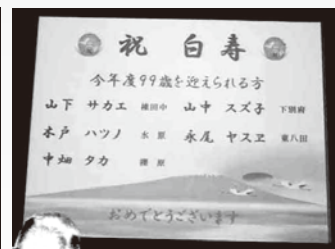 祝 白寿
今年度99歳を迎えられる方
山下 サカエ 山中 スズ子 下別府
木戸 ハツノ 水原 永尾 ヤスヱ 東八田
中畑 タカ
おめでとうございます